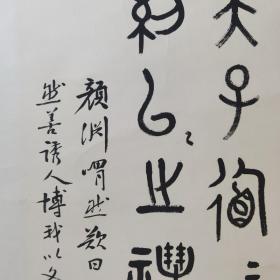 夫子循〻
約以之禮
顏淵喟然歎曰
然善誘人博我以文